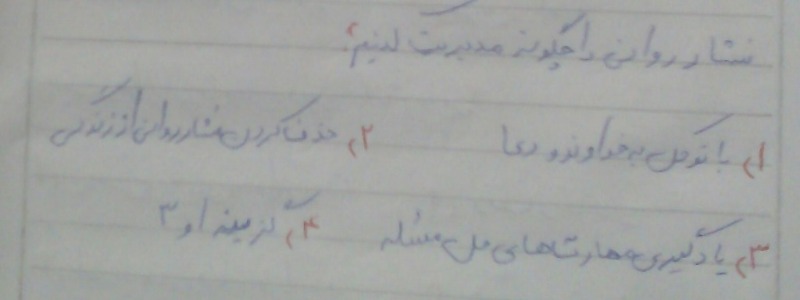 فشار روانی را چگونه مدیریت کنیم؟
۱) با توکل به خداوند و دعا ۲) حذف کردن فشار روانی از زندگی
۳) یادگیری مهارتهای حل مسئله ۴) گزینه ۱ و ۳